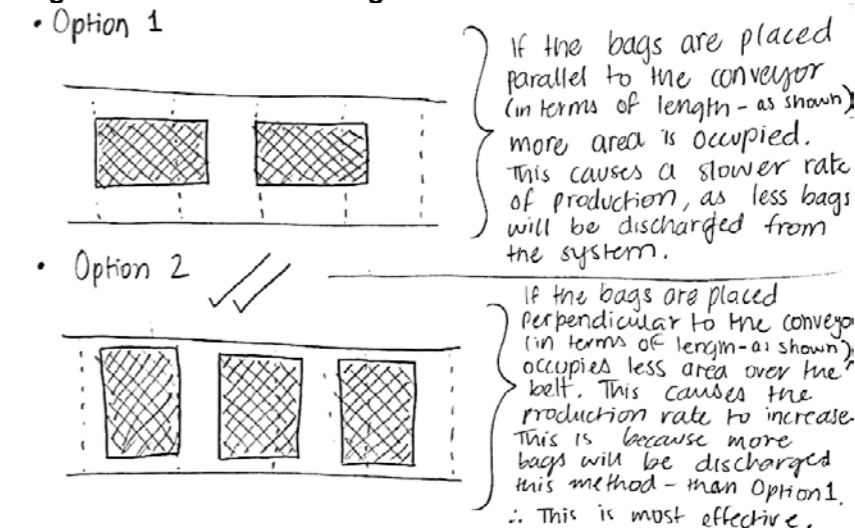 • Option 1
If the bags are placed
parallel to the conveyor
(in terms of length - as shown)
more area is occupied.
This causes a slower rate
of production, as less bags
will be discharged from
the system.
• Option 2
If the bags are placed
perpendicular to the conveyo
(in terms of length - as shown)
occupies less area over the
belt. This causes the
production rate to increase.
This is because more
bags will be discharged
this method - than Option 1.
∴ This is most effective.